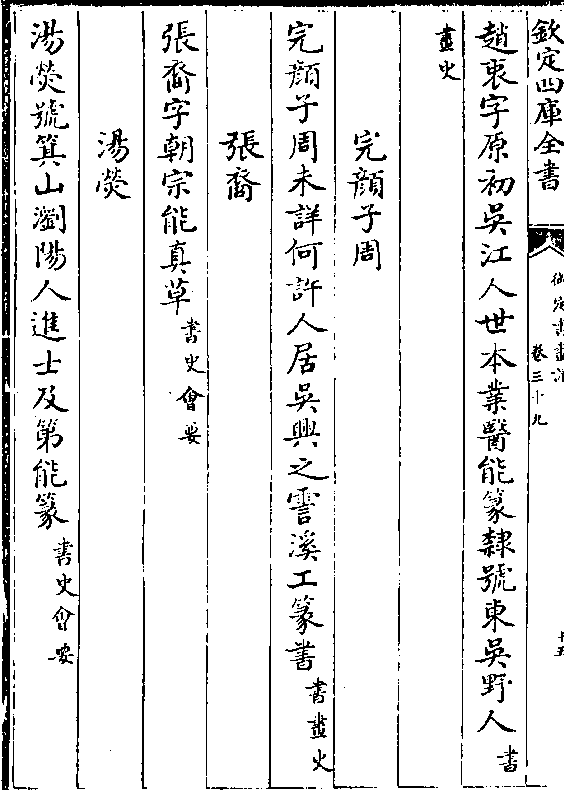 欽定四庫全書
御定書畫譜
卷三十九
十五
趙衷字原初吳江人世本業醫能篆隸號東吳野人書
畫史
完顏子周
完顏子周未詳何許人居吳興之霅溪工篆書書畫史
張裔
張裔字朝宗能真草書史會要
湯熒
湯熒號箕山瀏陽人進士及第能篆書史會要